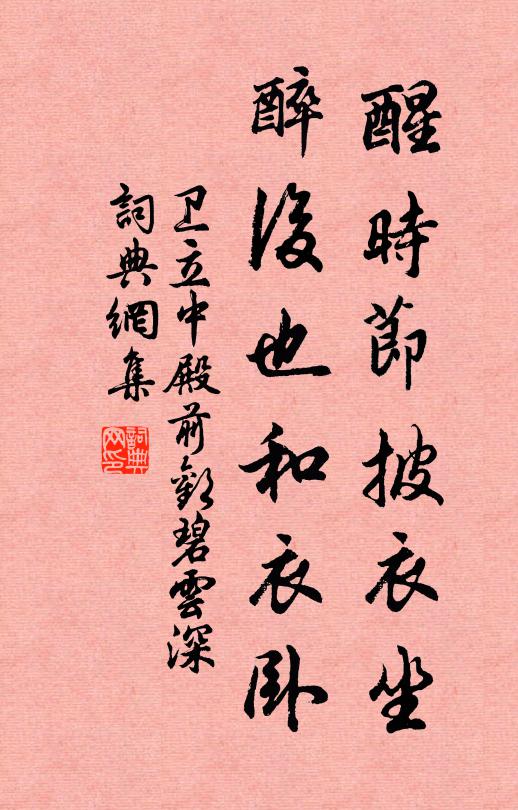 醒時節披衣坐
醉後也和衣卧
卫立中殿前歡碧雲深
詞典網集
詞典网印